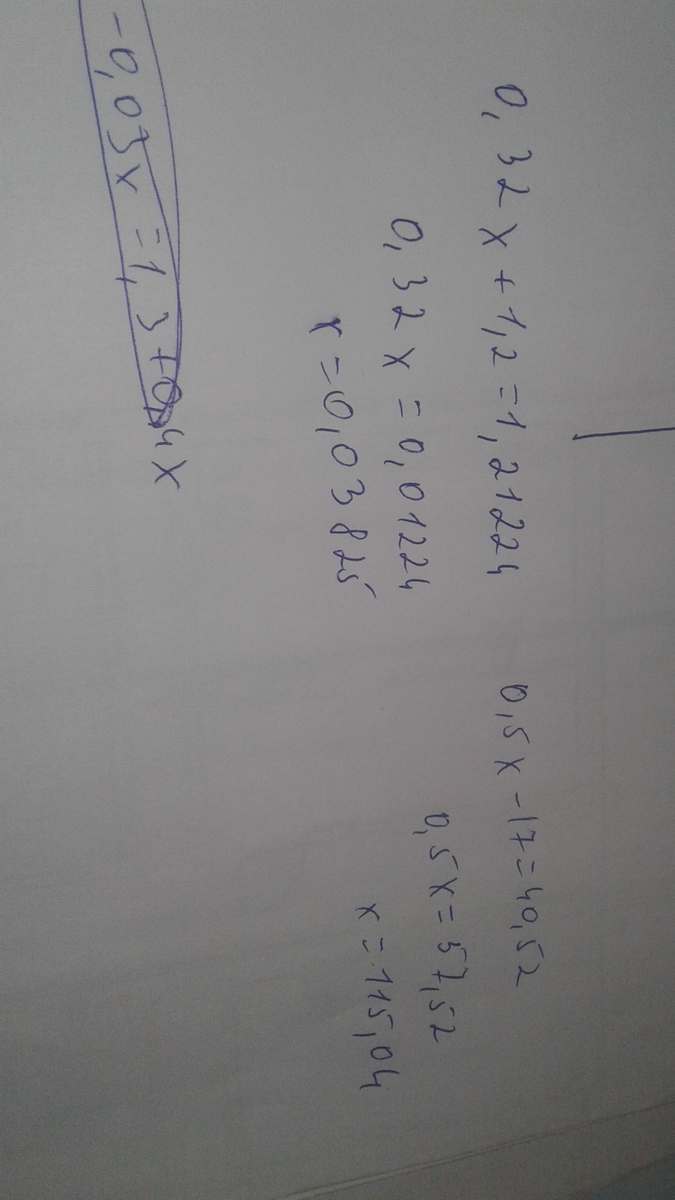 0,32x+1,2=1,21224
0,32x=0,01224
x=0,03825
0,5x-17=40,52
0,5x=57,52
x=115,04
-0,03x=1,3+0,4x